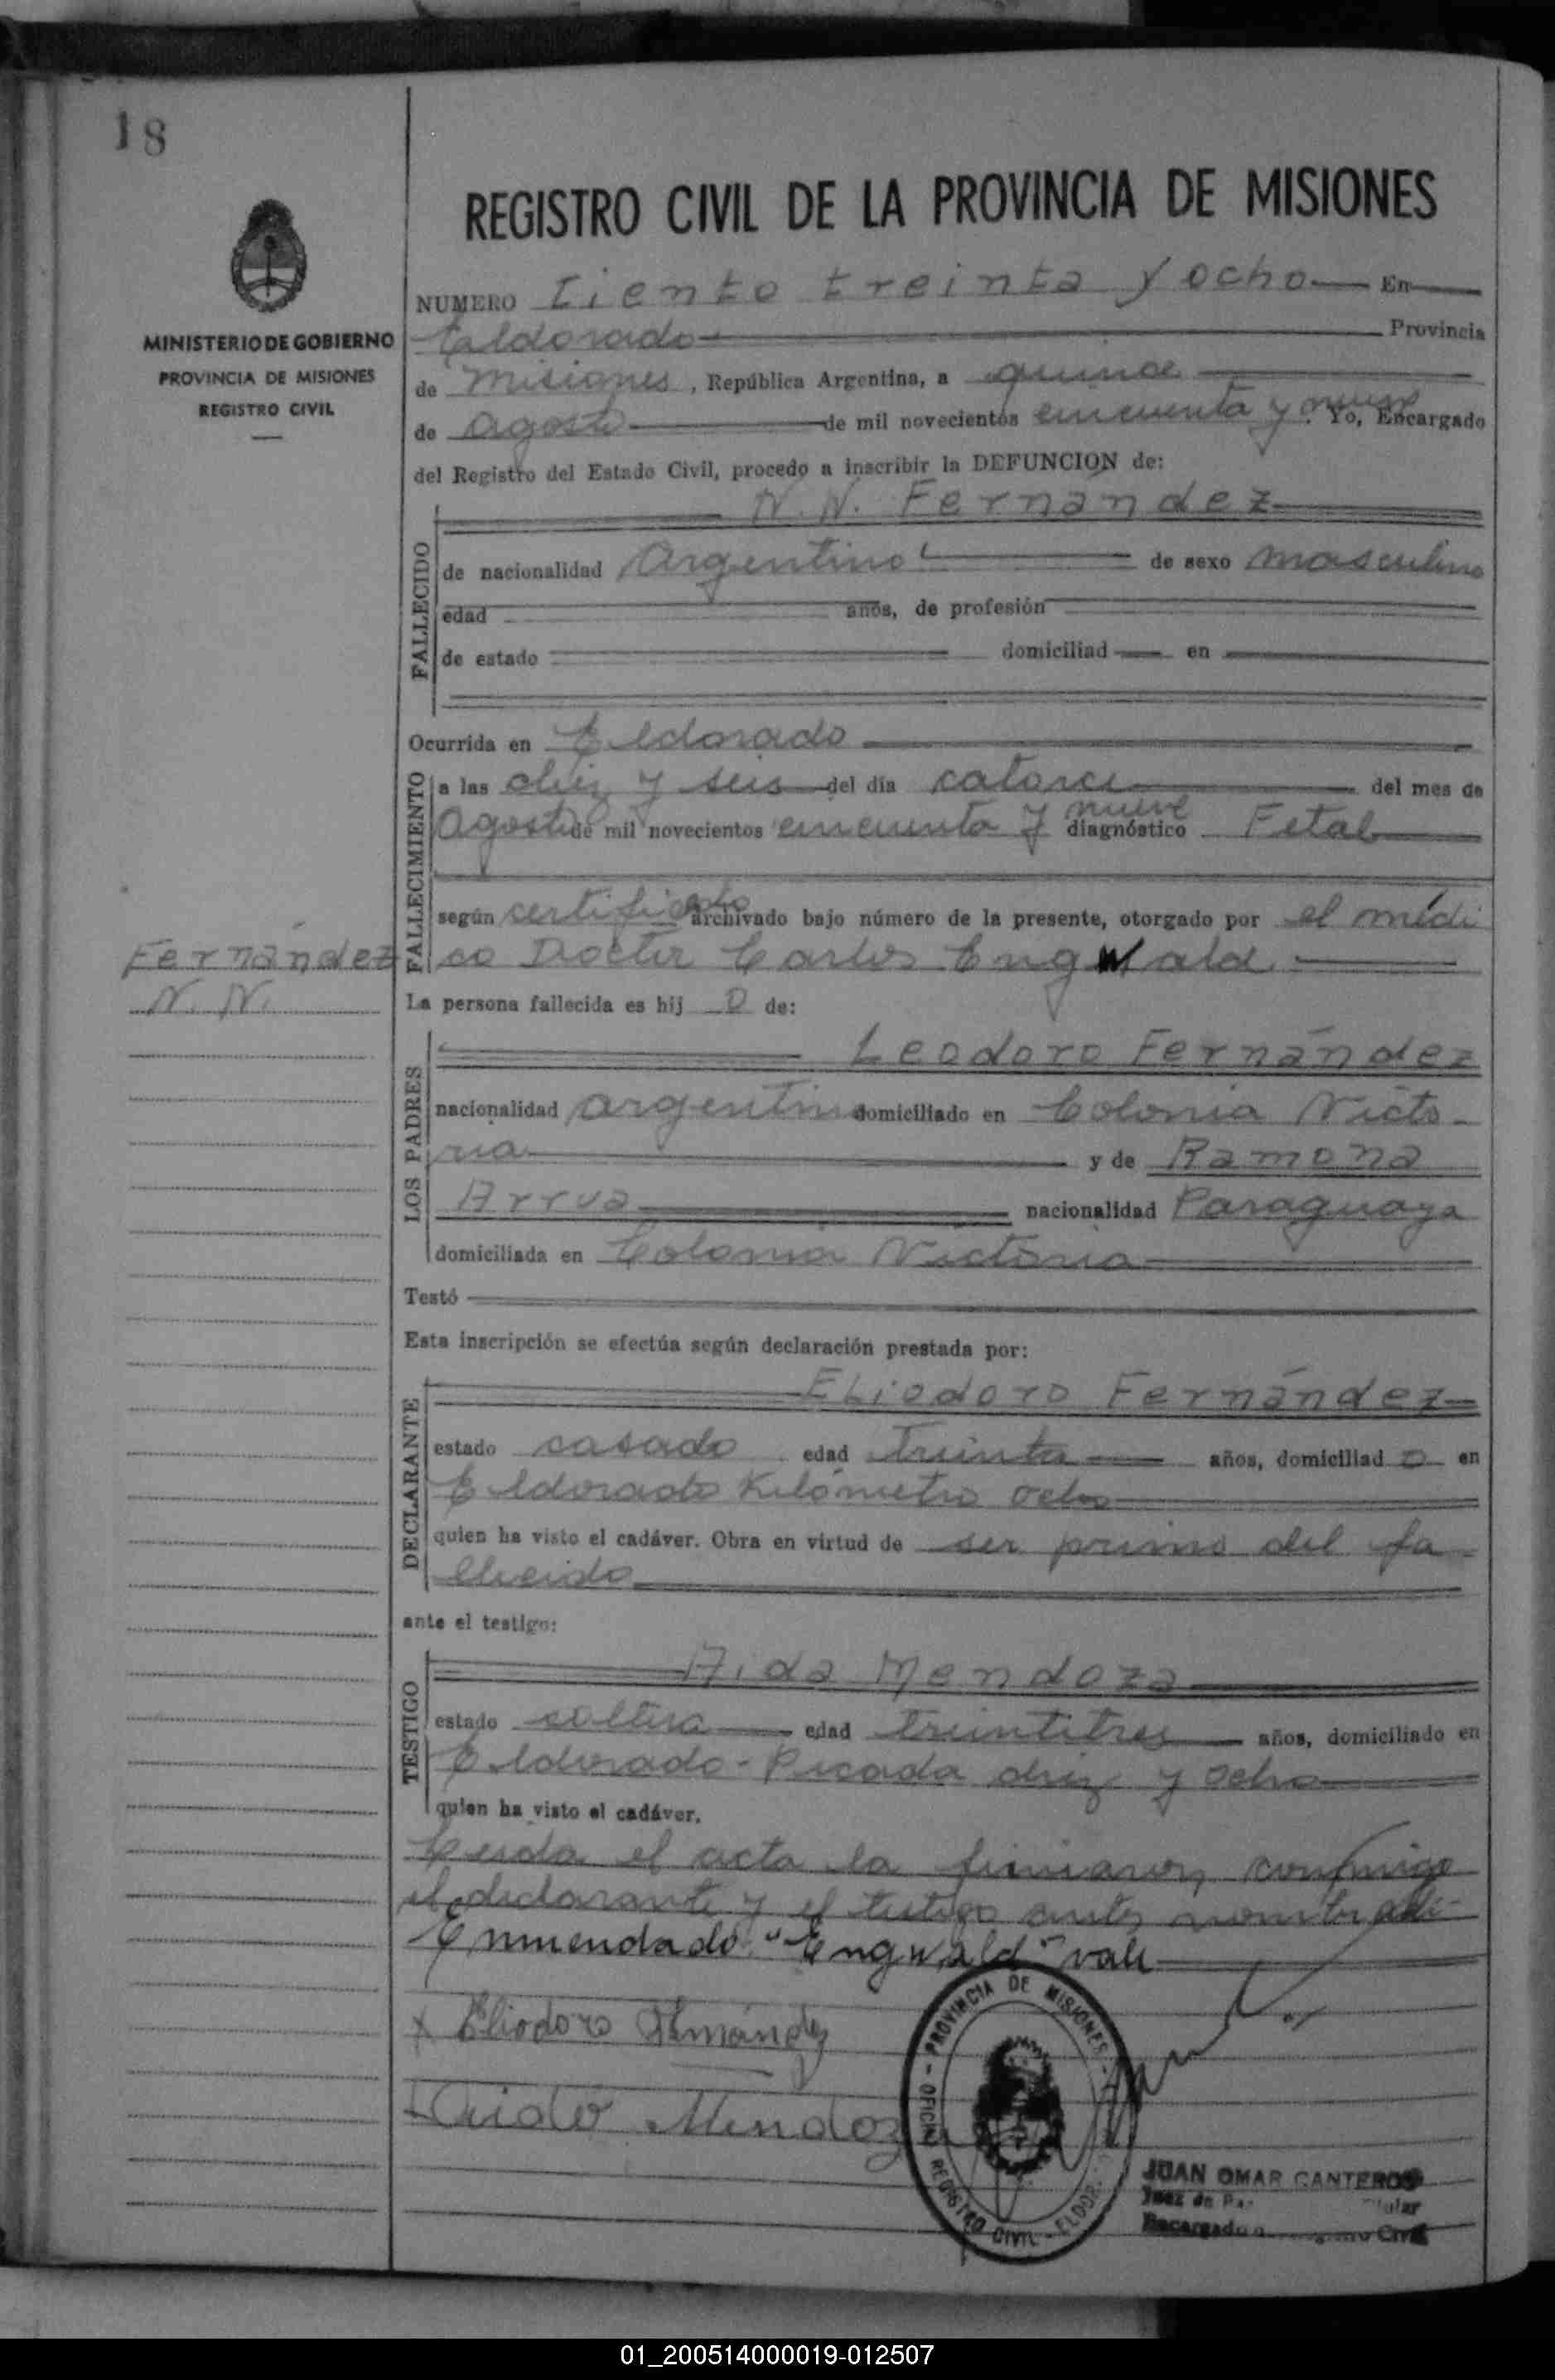 18
REGISTRO CIVIL DE LA PROVINCIA DE MISIONES
MINISTERIO DE GOBIERNO
PROVINCIA DE MISIONES
REGISTRO CIVIL
NUMERO Ciento treinta y ocho En
Eldorado Provincia
de Misiones, República Argentina, a quince
de agosto de mil novecientos cincuenta y nueve. Yo, Encargado
del Registro del Estado Civil, procedo a inscribir la DEFUNCION de:
N. N. Fernández
FALLECIDO
de nacionalidad Argentino de sexo masculino
edad años, de profesión
de estado domiciliad en
Ocurrida en Eldorado
FALLECIMIENTO
a las diez y seis del día catorce del mes de
Agosto de mil novecientos cincuenta y nueve diagnóstico Fetal
según certificado archivado bajo número de la presente, otorgado por el médi
co Doctor Carlos Engwald
Fernández
N. N.
La persona fallecida es hij o de:
LOS PADRES
Leodoro Fernández
nacionalidad argentino domiciliado en Colonia Victo-
ria y de Ramona
Arrua nacionalidad Paraguaya
domiciliada en Colonia Victoria
Testó
Esta inscripción se efectúa según declaración prestada por:
DECLARANTE
Eliodoro Fernández
estado casado edad treinta años, domiciliad o en
Eldorado Kilómetro ocho
quien ha visto el cadáver. Obra en virtud de ser primo del fa-
llecido
ante el testigo:
TESTIGO
Aida Mendoza
estado soltera edad treintitres años, domiciliado en
Eldorado - Picada diez y ocho
quien ha visto el cadáver.
Leida el acta la firmaron conmigo
el declarante y el testigo antes nombrado-
Enmendado: "Engwald" vale
x Eliodoro Fernández
Aida Mendoza
PROVINCIA DE MISIONES - OFICINA REGISTRO CIVIL - ELDOR
JUAN OMAR CANTEROS
Juez de Paz Titular
Encargado Civil
01_200514000019-012507